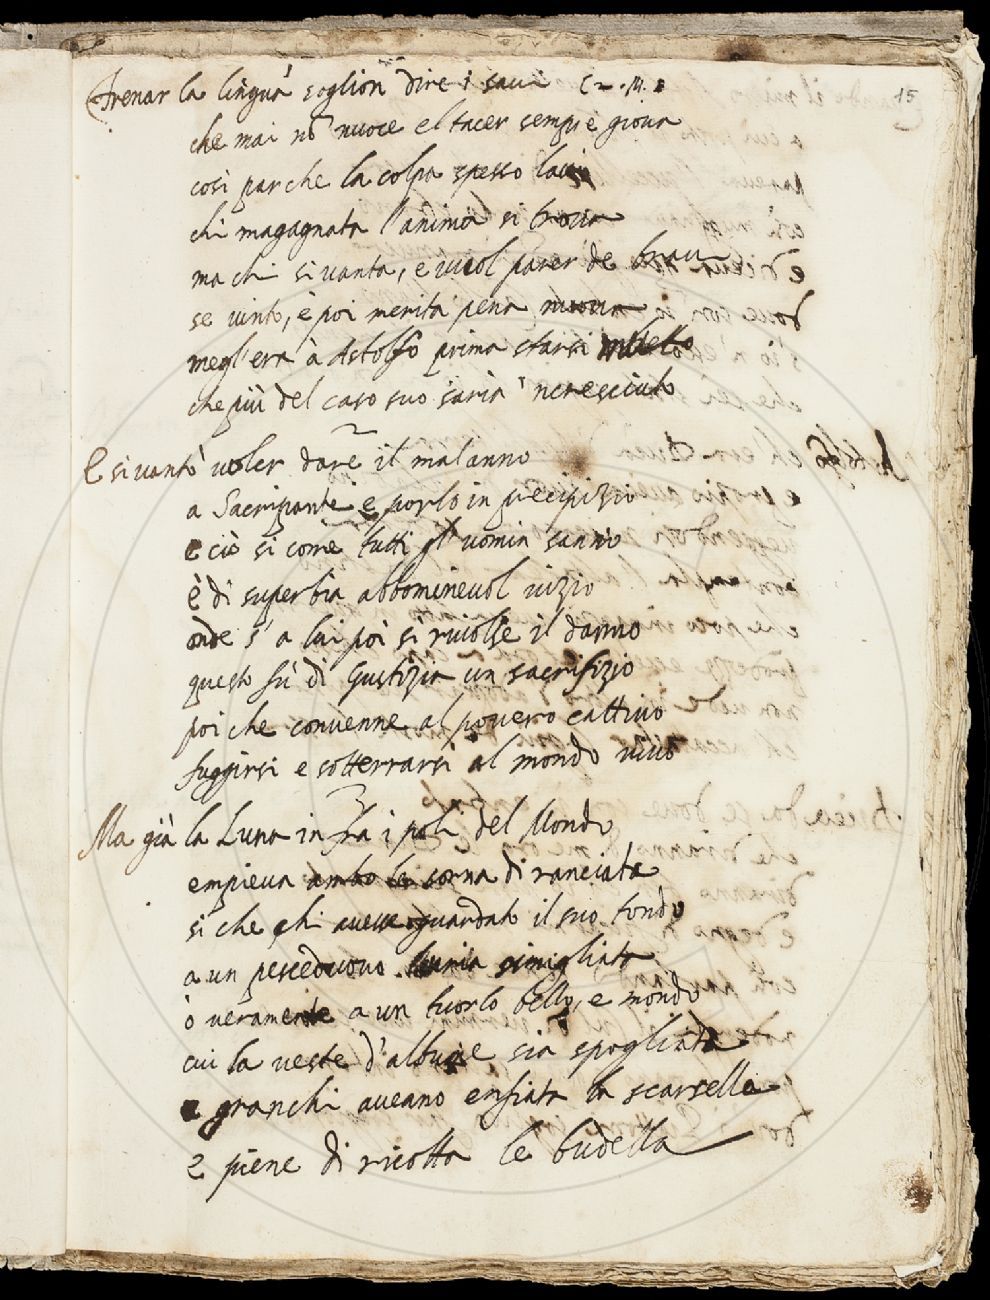 Frenar la lingua soglion dire i savi C2. M. 15
che mai nō nuoce el tacer sempre giova
così par che la colpa spesso lavi
chi magagnata l'anima si trova
ma chi si vanta, e vuol parer de bravi
se vinto, è poi merita pena nuova
megl'era à Astolfo prima starsi
che più del caso suo saria 'ncresciuto
E si vantò voler dare il malanno
a Sacripante e porlo in precipizio
e ciò si come tutti gl'uomin sanno
è di superbia abbominevol vizio
onde s'a lui poi si rivolse il danno
questo fù di Giustizia un sacrifizio
poi che convenne al povero cattivo
fuggirsi e sotterrarsi al mondo vivo
Ma già la Luna in fra i poli del Mondo
empieva ambo le corna di ranciata
si che chi avesse guardato il suo tondo
a un pesceduovo simigliata
ò veramente a un tuorlo bello, e mondo
cui la veste d'albume sia spogliata
e granchi aveano enfiata la scarsella
e piene di ricotta le budella